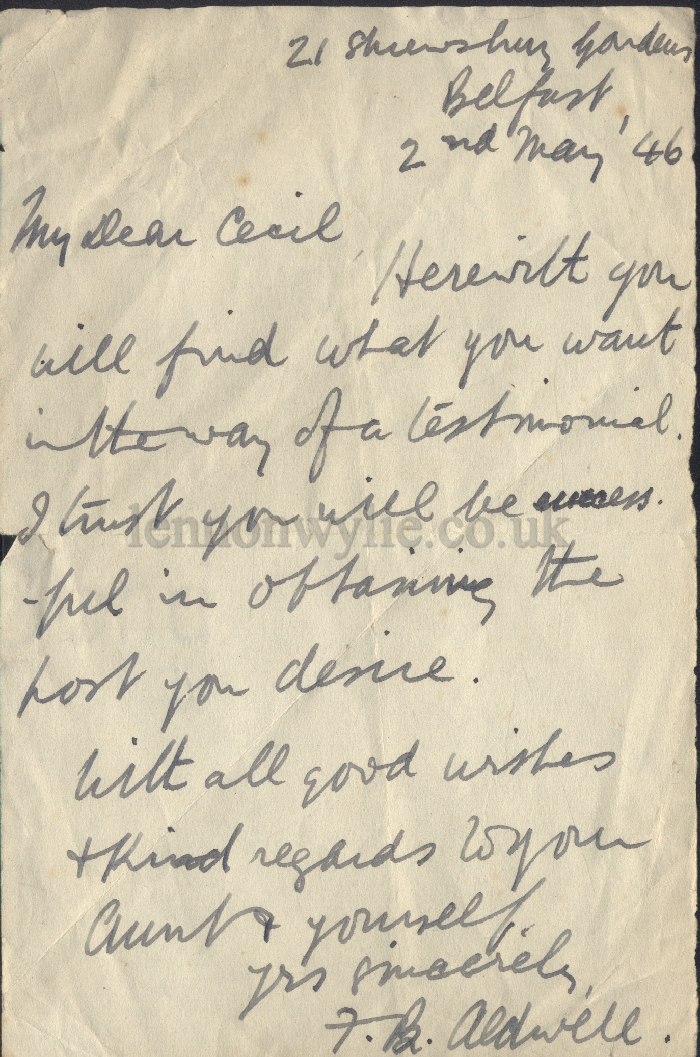 21 Shrewsbury Gardens
Belfast,
2nd May '46
My Dear Cecil
Herewith you
will find what you want
in the way of a testimonial.
I trust you will be success-
lennonwylie.co.uk
-ful in obtaining the
post you desire.
With all good wishes
+ Kind regards to your
Aunt & yourself,
yrs sincerely,
F. B. Aldwell.